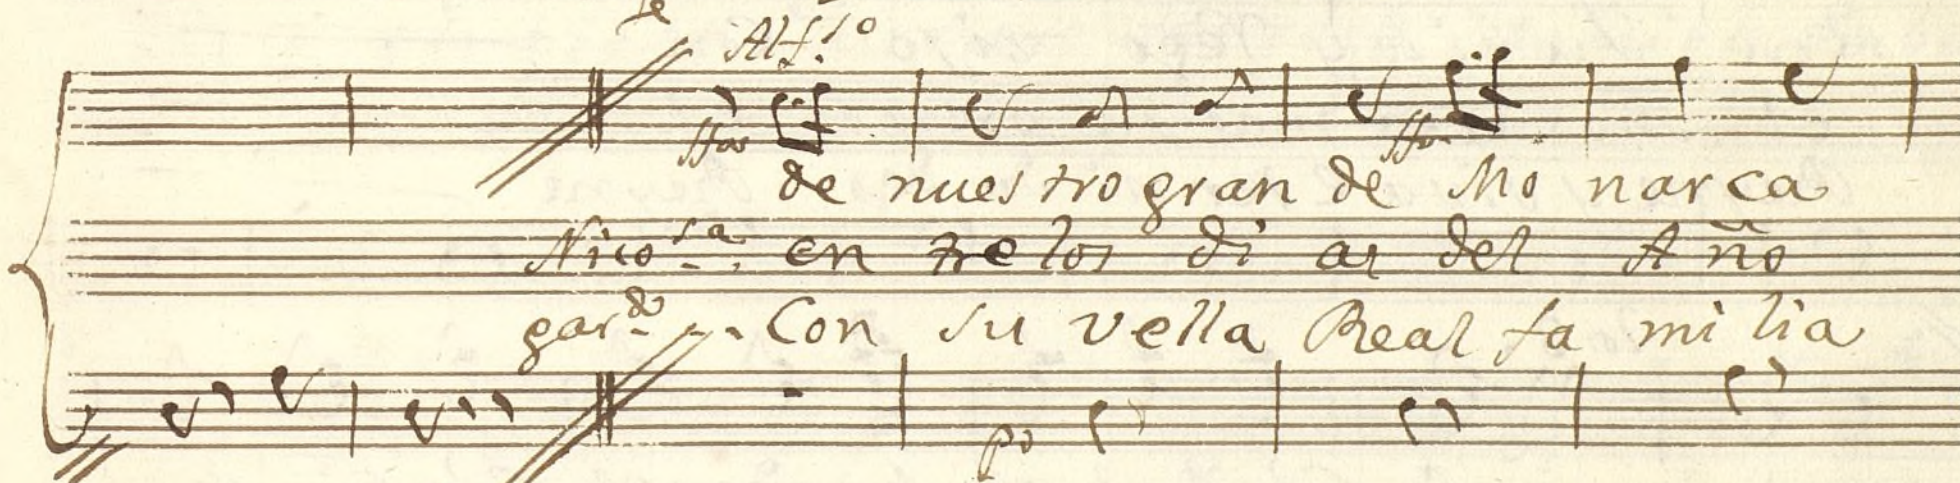 Alf.so
de nuestro gran de Mo narca
Nico.sa en tre los di as del Año
gar.do Con su vella Real fa mi lia
po